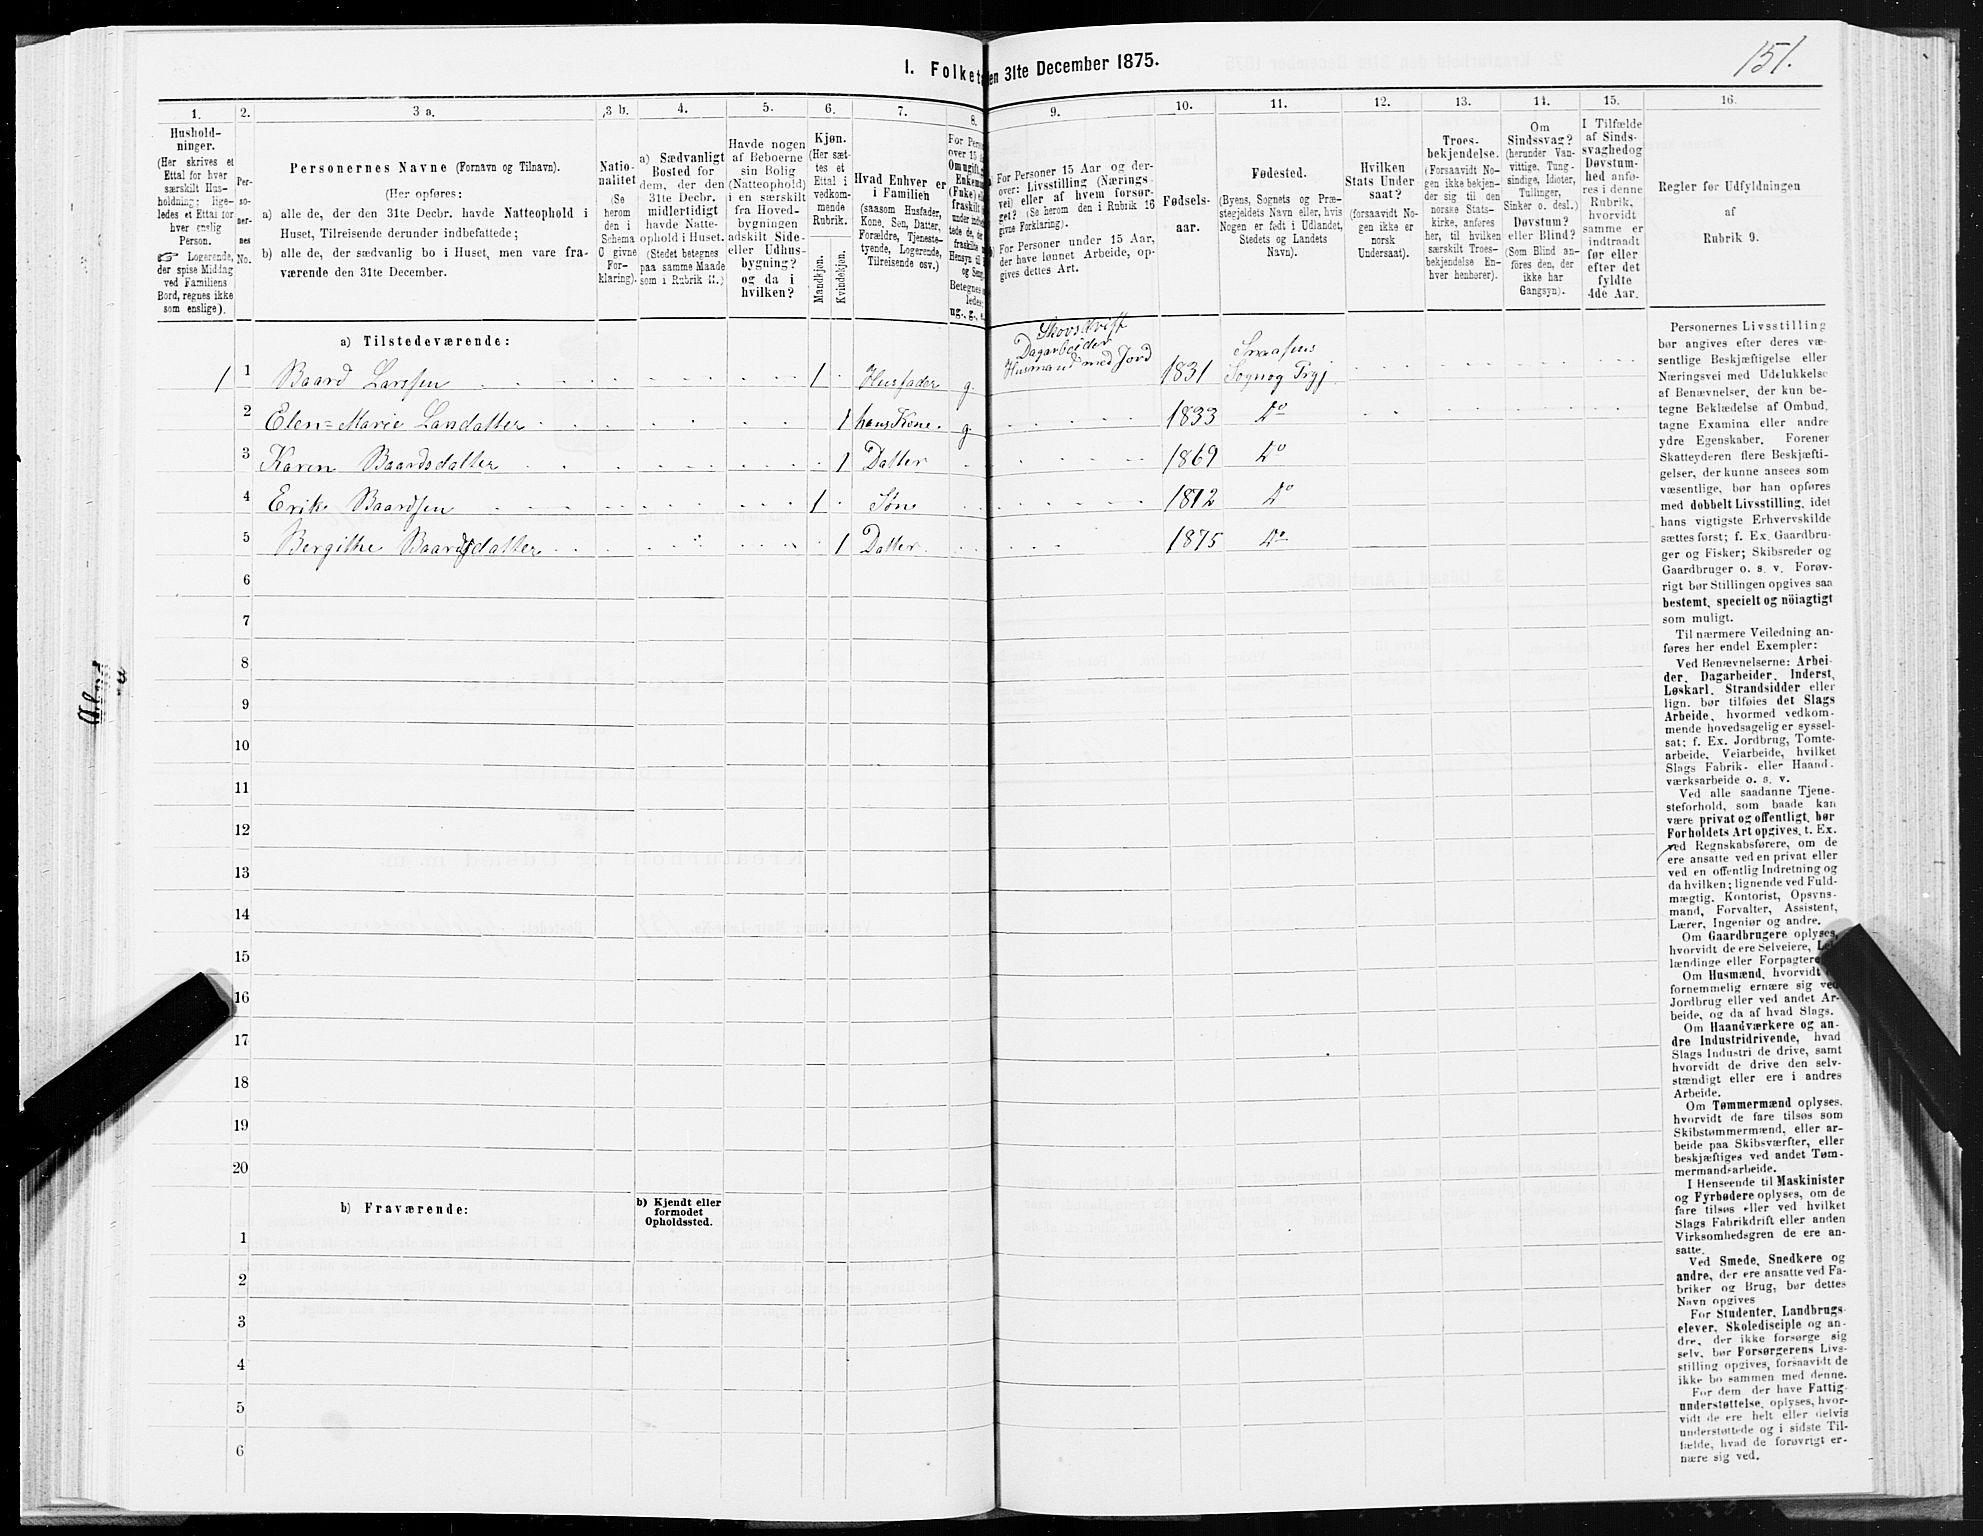 151.
I. Folket
en 31te December 1875.
1.
2.
3 a.
3 b.
4.
5.
6.
7.
8.
9.
10.
11.
12.
13.
14.
15.
16.
Hushold-
ninger.
(Her skrives et
Ettal for hver
særskilt Hus-
holdning; lige-
ledes et Ettal for
hver enslig
Person.
☞ Logerende,
der spise Middag
ved Familiens
Bord, regnes ikke
som enslige).
Per-
so-
ner-
nes
No.
Personernes Navne (Fornavn og Tilnavn).
(Her opføres:
a) alle de, der den 31te Decbr. havde Natteophold i
Huset, Tilreisende derunder indbefattede;
b) alle de, der sædvanlig bo i Huset, men vare fra-
værende den 31te December.
Natio-
nalitet
(Se
herom
den i
Schema
C givne
For-
klaring).
a) Sædvanligt
Bosted for
dem, der den
31te Decbr.
midlertidigt
havde Natte-
ophold i Huset.
(Stedet betegnes
paa samme Maade
som i Rubrik 11.)
Havde nogen
af Beboerne
sin Bolig
(Natteophold)
i en særskilt
fra Hoved-
bygningen
adskilt Side-
eller Udhus-
bygning?
og da i
hvilken?
Kjøn.
(Her sæt-
tes et
Ettal i
vedkom-
mende
Rubrik.
Mandkjøn.
Kvindekjøn.
Hvad Enhver er
i Familien
(saasom Husfader,
Kone, Søn, Datter,
Forældre, Tjeneste-
tyende, Logerende,
Tilreisende osv.)
For Perso
over 15
Om ugift,
Enkema
(Fuke) el
fraskilt
under indbe
tede de, de
fraskilte
Hensyn til
og Seng
Betegnes
ledes:
ug., g., e.
For Personer 15 Aar og der-
over: Livsstilling (Nærings-
vei) eller af hvem forsør-
get? (Se herom den i Rubrik 16
givne Forklaring).
For Personer under 15 Aar,
der have lønnet Arbeide, op-
gives dettes Art.
Fødsels-
aar.
Fødested.
(Byens, Sognets og Præ-
stegjeldets Navn eller, hvis
Nogen er født i Udlandet,
Stedets og Landets
Navn).
Hvilken
Stats Under
saat?
(forsaavidt No-
gen ikke er
norsk
Undersaat).
Troes-
bekjendelse.
(Forsaavidt No-
gen ikke bekjen-
der sig til den
norske Stats-
kirke, anføres
her, til hvilken
særskilt Troes-
bekjendelse En-
hver henhører).
Om
Sindssvag?
(herunder Van-
vittige, Tung-
sindige, Idioter,
Tullinger,
Sinker o. desl.)
Døvstum?
eller Blind?
(Som Blind an-
føres den, der
ikke har
Gangsyn).
I Tilfælde
af Sinds-
svaghed og
Døvstum-
hed anfø-
res i denne
Rubrik,
hvorvidt
samme er
indtraadt
før eller
efter det
fyldte
4de Aar.
Regler før Udfyldningen
af
Rubrik 9.
a) Tilstedeværende:
Skovsdrift
Dagarbeider
Husmand med Jord
Snaasens
1 1 Baard Larssen 1 Husfader g. 1831 Sogn og Prgj.
2 Elen=Marie Larsdatter 1 hans Kone. g. 1833 Do
3 Karen Baardsdatter 1 Datter 1869 Do
4 Erik Baardsen 1 Søn 1872 Do
5 Bergithe Baardsdatter 1 Datter 1875 Do
6
7
8
9
10
11
12
13
14
15
16
17
18
19
20
b) Fraværende:
b) Kjendt eller
formodet
Opholdssted.
1
2
3
4
5
6
Personernes Livsstilling
bør angives efter deres væ-
sentlige Beskjæftigelse eller
Næringsvei med Udelukkelse
af Benævnelser, der kun be-
tegne Beklædelse af Ombud,
tagne Examina eller andre
ydre Egenskaber. Forener
Skatteyderen flere Beskjæfti-
gelser, der kunne ansees som
væsentlige, bør han opføres
med dobbelt Livsstilling, idet
hans vigtigste Erhvervskilde
sættes først; f. Ex. Gaardbru-
ger og Fisker; Skibsreder og
Gaardbruger o. s. v. Forøv-
rigt bør Stillingen opgives saa
bestemt, specielt og nöiagtigt
som muligt.
Til nærmere Veiledning an-
føres her endel Exempler:
Ved Benævnelserne: Arbei-
der, Dagarbeider, Inderst,
Løskarl, Strandsidder eller
lign. bør tilføies det Slags
Arbeide, hvormed vedkom-
mende hovedsagelig er syssel-
sat; f. Ex. Jordbrug, Tomte-
arbeide, Veiarbeide, hvilket
Slags Fabrik- eller Haand-
værksarbeide o. s. v.
Ved alle saadanne Tjene-
steforhold, som baade kan
være privat og offentligt, bør
Forholdets Art opgives, t. Ex.
ved Regnskabsførere, om de
ere ansatte ved en privat eller
ved en offentlig Indretning og
da hvilken; lignende ved Fuld-
mægtig, Kontorist, Opsyns-
mand, Forvalter, Assistent,
Lærer, Ingeniør og andre.
Om Gaardbrugere oplyses,
hvorvidt de ere Selveiere, Lei
lændinge eller Forpagtere.
Om Husmænd, hvorvidt
fornemmelig ernære sig ved
Jordbrug eller ved andet Ar-
beide, og da af hvad Slags.
Om Haandværkere og an-
dre Industridrivende, hvad
Slags Industri de drive, samt
hvorvidt de drive den selv-
stændigt eller ere i andres
Arbeide.
Om Tømmermænd oplyses,
hvorvidt de fare tilsøs som
Skibstømmermænd, eller ar-
beide paa Skibsværfter, eller
beskjæftiges ved andet Tøm-
mermandsarbeide.
I Henseende til Maskinister
og Fyrbødere oplyses, om de
fare tilsøs eller ved hvilket
Slags Fabrikdrift eller anden
Virksomhedsgren de ere an-
satte.
Ved Smede, Snedkere og
andre, der ere ansatte ved Fa-
briker og Brug, bør dettes
Navn opgives
For Studenter, Landbrugs-
elever, Skoledisciple og an-
dre, der ikke forsørge sig
selv, bør Forsørgerens Livs-
stilling opgives, forsaavidt de
ikke bo sammen med denne.
For dem, der have Fattig-
understøttelse, oplyses, hvor-
vidt de ere helt eller delvis
understøttede og i sidste Til-
fælde, hvad de forøvrigt er-
nære sig ved.